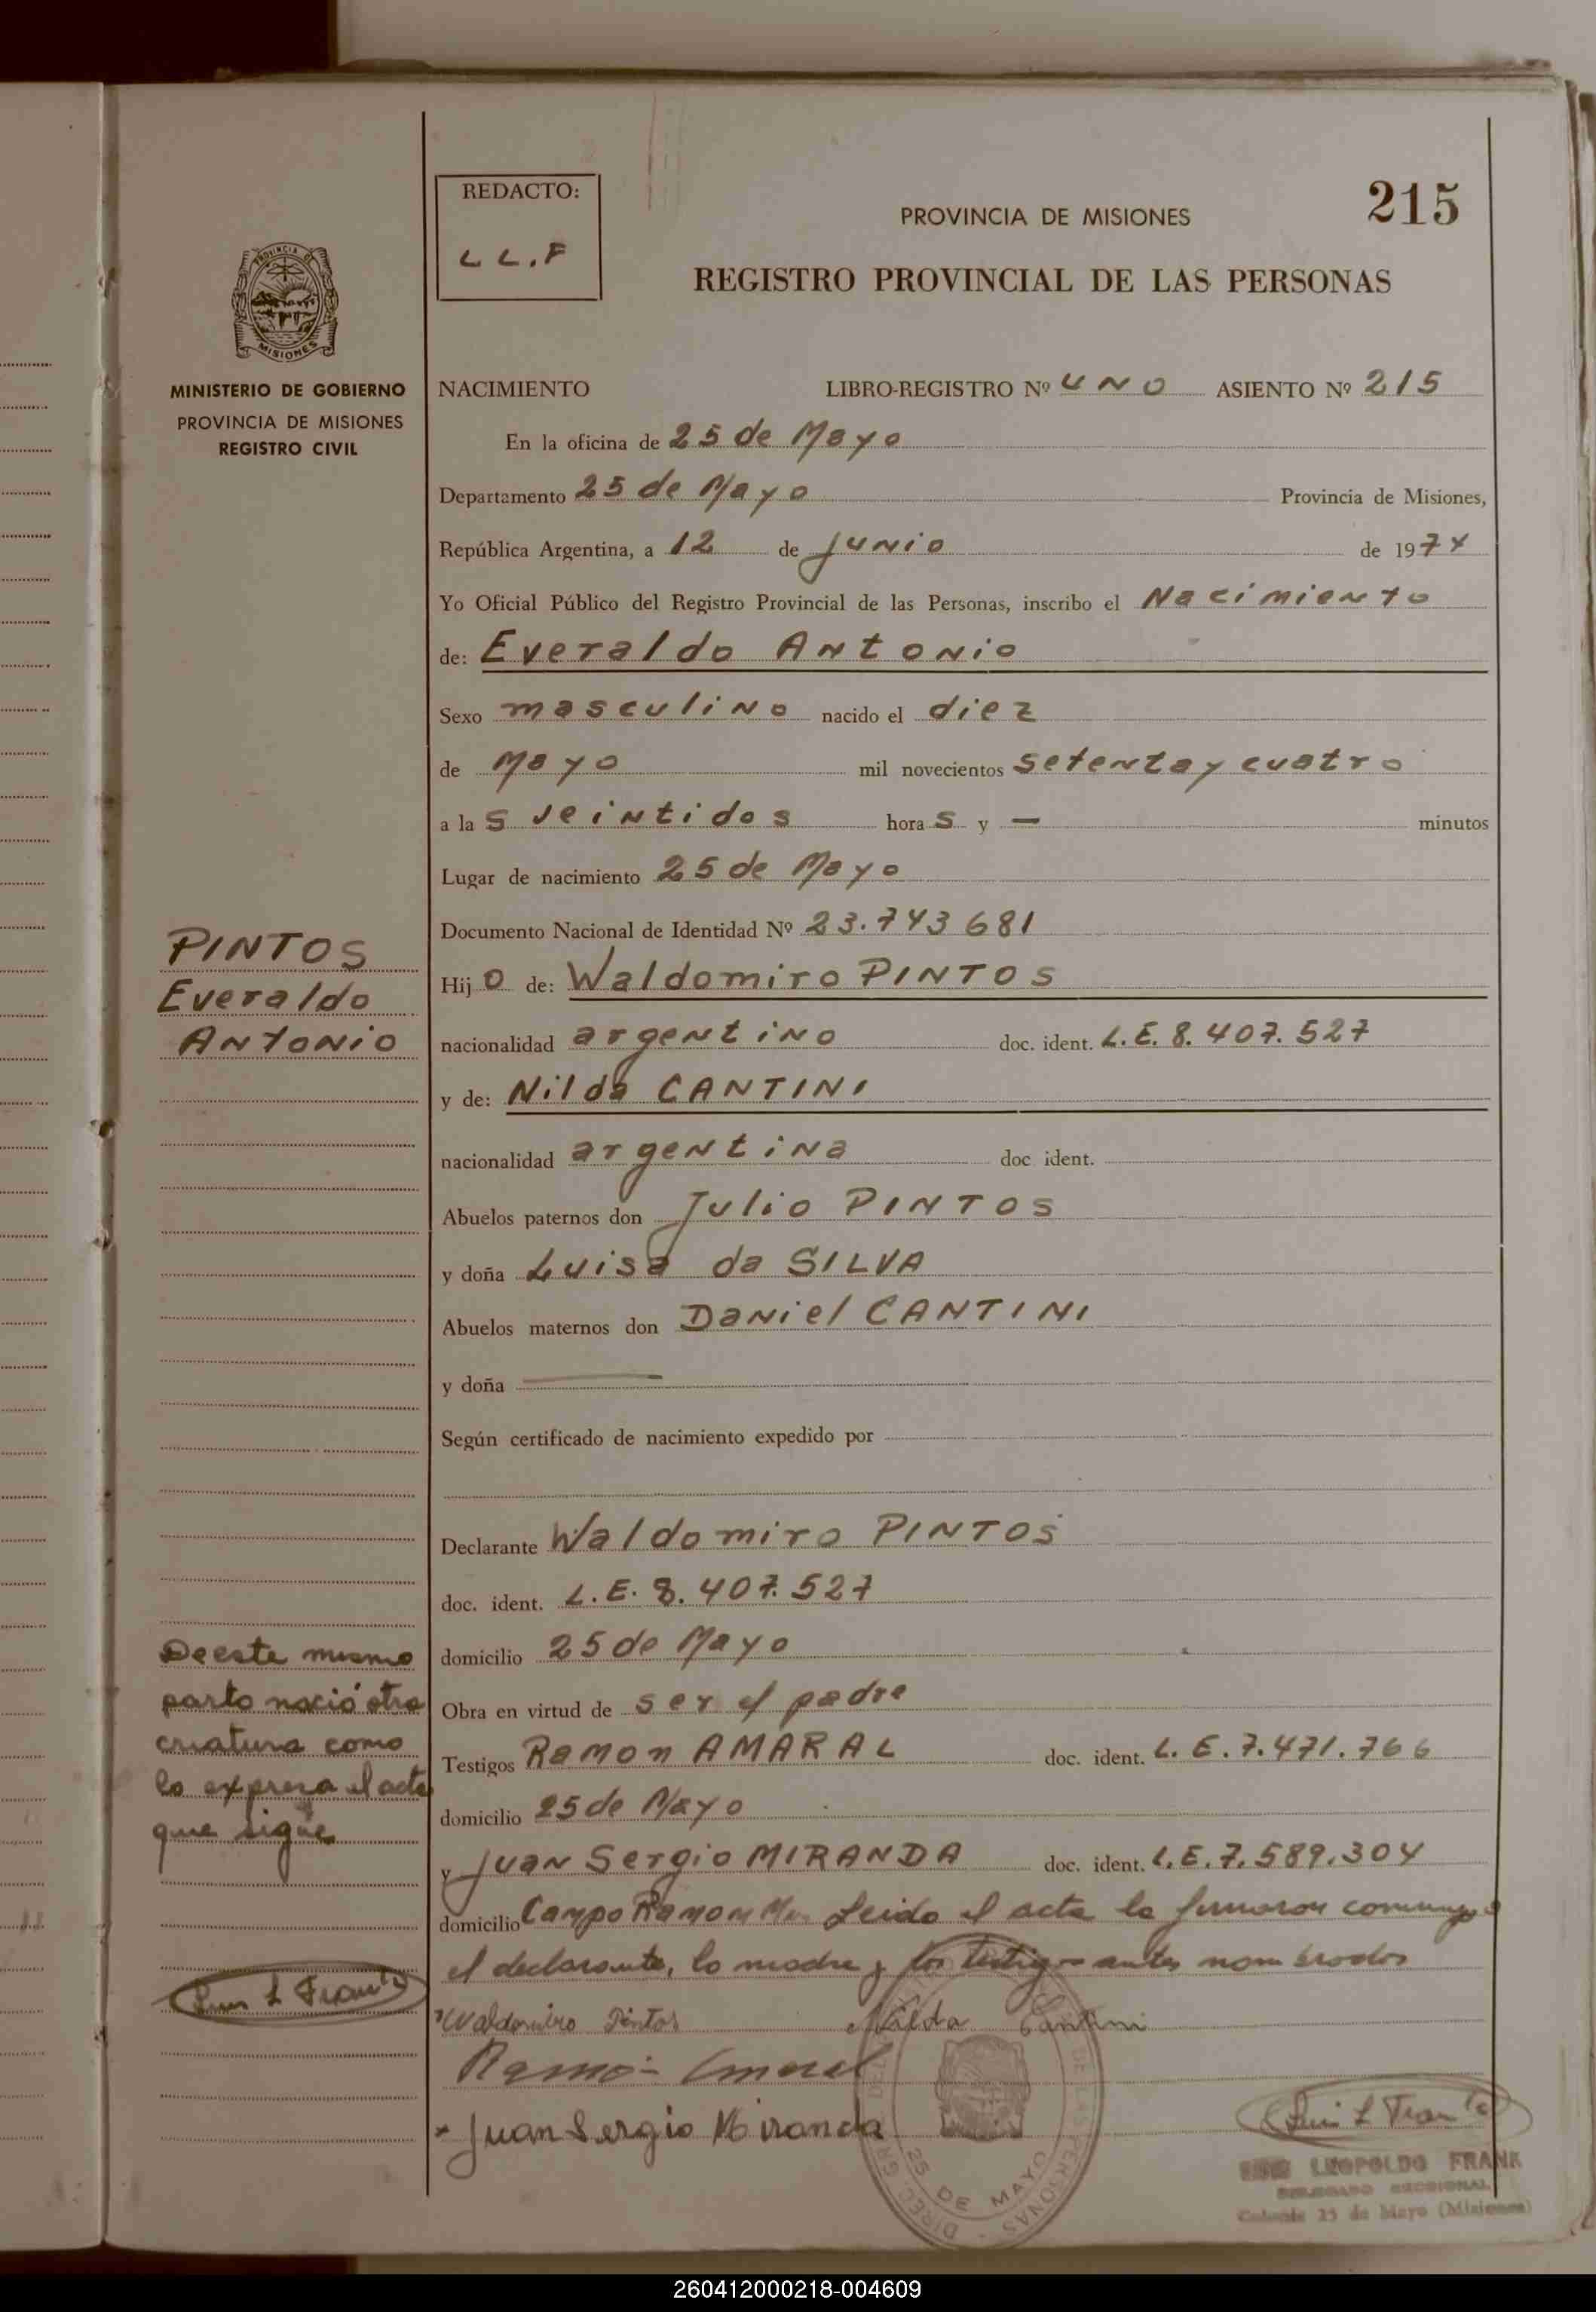 REDACTO:
LL.F
PROVINCIA DE MISIONES
215
REGISTRO PROVINCIAL DE LAS PERSONAS
PROVINCIA DE
MISIONES
MINISTERIO DE GOBIERNO
PROVINCIA DE MISIONES
REGISTRO CIVIL
NACIMIENTO LIBRO-REGISTRO Nº UNO ASIENTO Nº 215
En la oficina de 25 de Mayo
Departamento 25 de Mayo Provincia de Misiones,
República Argentina, a 12 de Junio de 1974
Yo Oficial Público del Registro Provincial de las Personas, inscribo el Nacimiento
de: Everaldo Antonio
Sexo masculino nacido el diez
de Mayo mil novecientos setenta y cuatro
a las veintidos horas y — minutos
Lugar de nacimiento 25 de Mayo
Documento Nacional de Identidad Nº 23.743681
PINTOS
Everaldo
Antonio
Hijo de: Waldomiro PINTOS
nacionalidad argentino doc. ident. L.E. 8.407.527
y de: Nilda CANTINI
nacionalidad argentina doc ident.
Abuelos paternos don Julio PINTOS
y doña Luisa da SILVA
Abuelos maternos don Daniel CANTINI
y doña —
Según certificado de nacimiento expedido por
Declarante Waldomiro PINTOS
doc. ident. L.E. 8.407.527
domicilio 25 de Mayo
Obra en virtud de ser el padre
Testigos Ramon AMARAL doc. ident. L.E.7.471.766
domicilio 25 de Mayo
y Juan Sergio MIRANDA doc. ident. L.E.7.589.304
domicilio Campo Ramon Mnes Leido el acta la firmaron conmigo
el declarante, la madre y los testigos antes nombrados
De este mismo
parto nació otra
criatura como
lo expresa el acta
que sigue
Luis L Frank
Waldomiro Pintos Nilda Cantini
Ramón Amaral
x Juan Sergio Miranda
25 DE MAYO
DE LAS PERSONAS
Luis L Frank
LUIS LEOPOLDO FRANK
DELEGADO SECCIONAL
Colonia 25 de Mayo (Misiones)
260412000218-004609